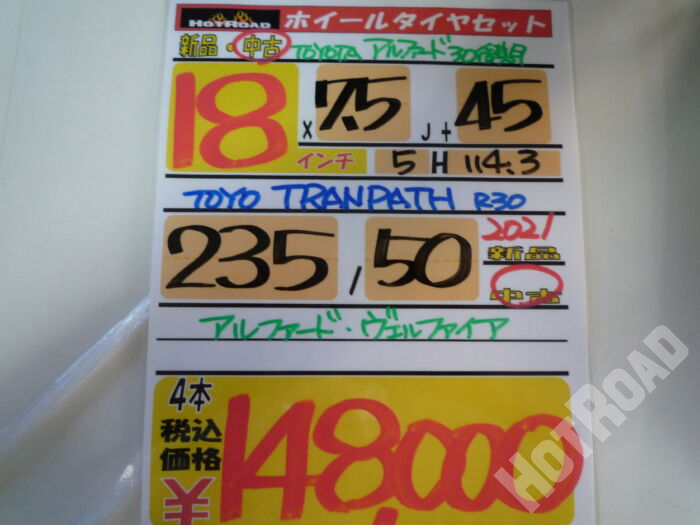 HOTROAD ホイールタイヤセット
新品・中古 TOYOTA アルファード30後期
18 × 7.5 J + 45
インチ 5 H 114.3
TOYO TRANPATH R30
235 / 50 2021 新品 中古
アルファード・ヴェルファイア
4本
税込
価格
¥148,000
HOTROAD